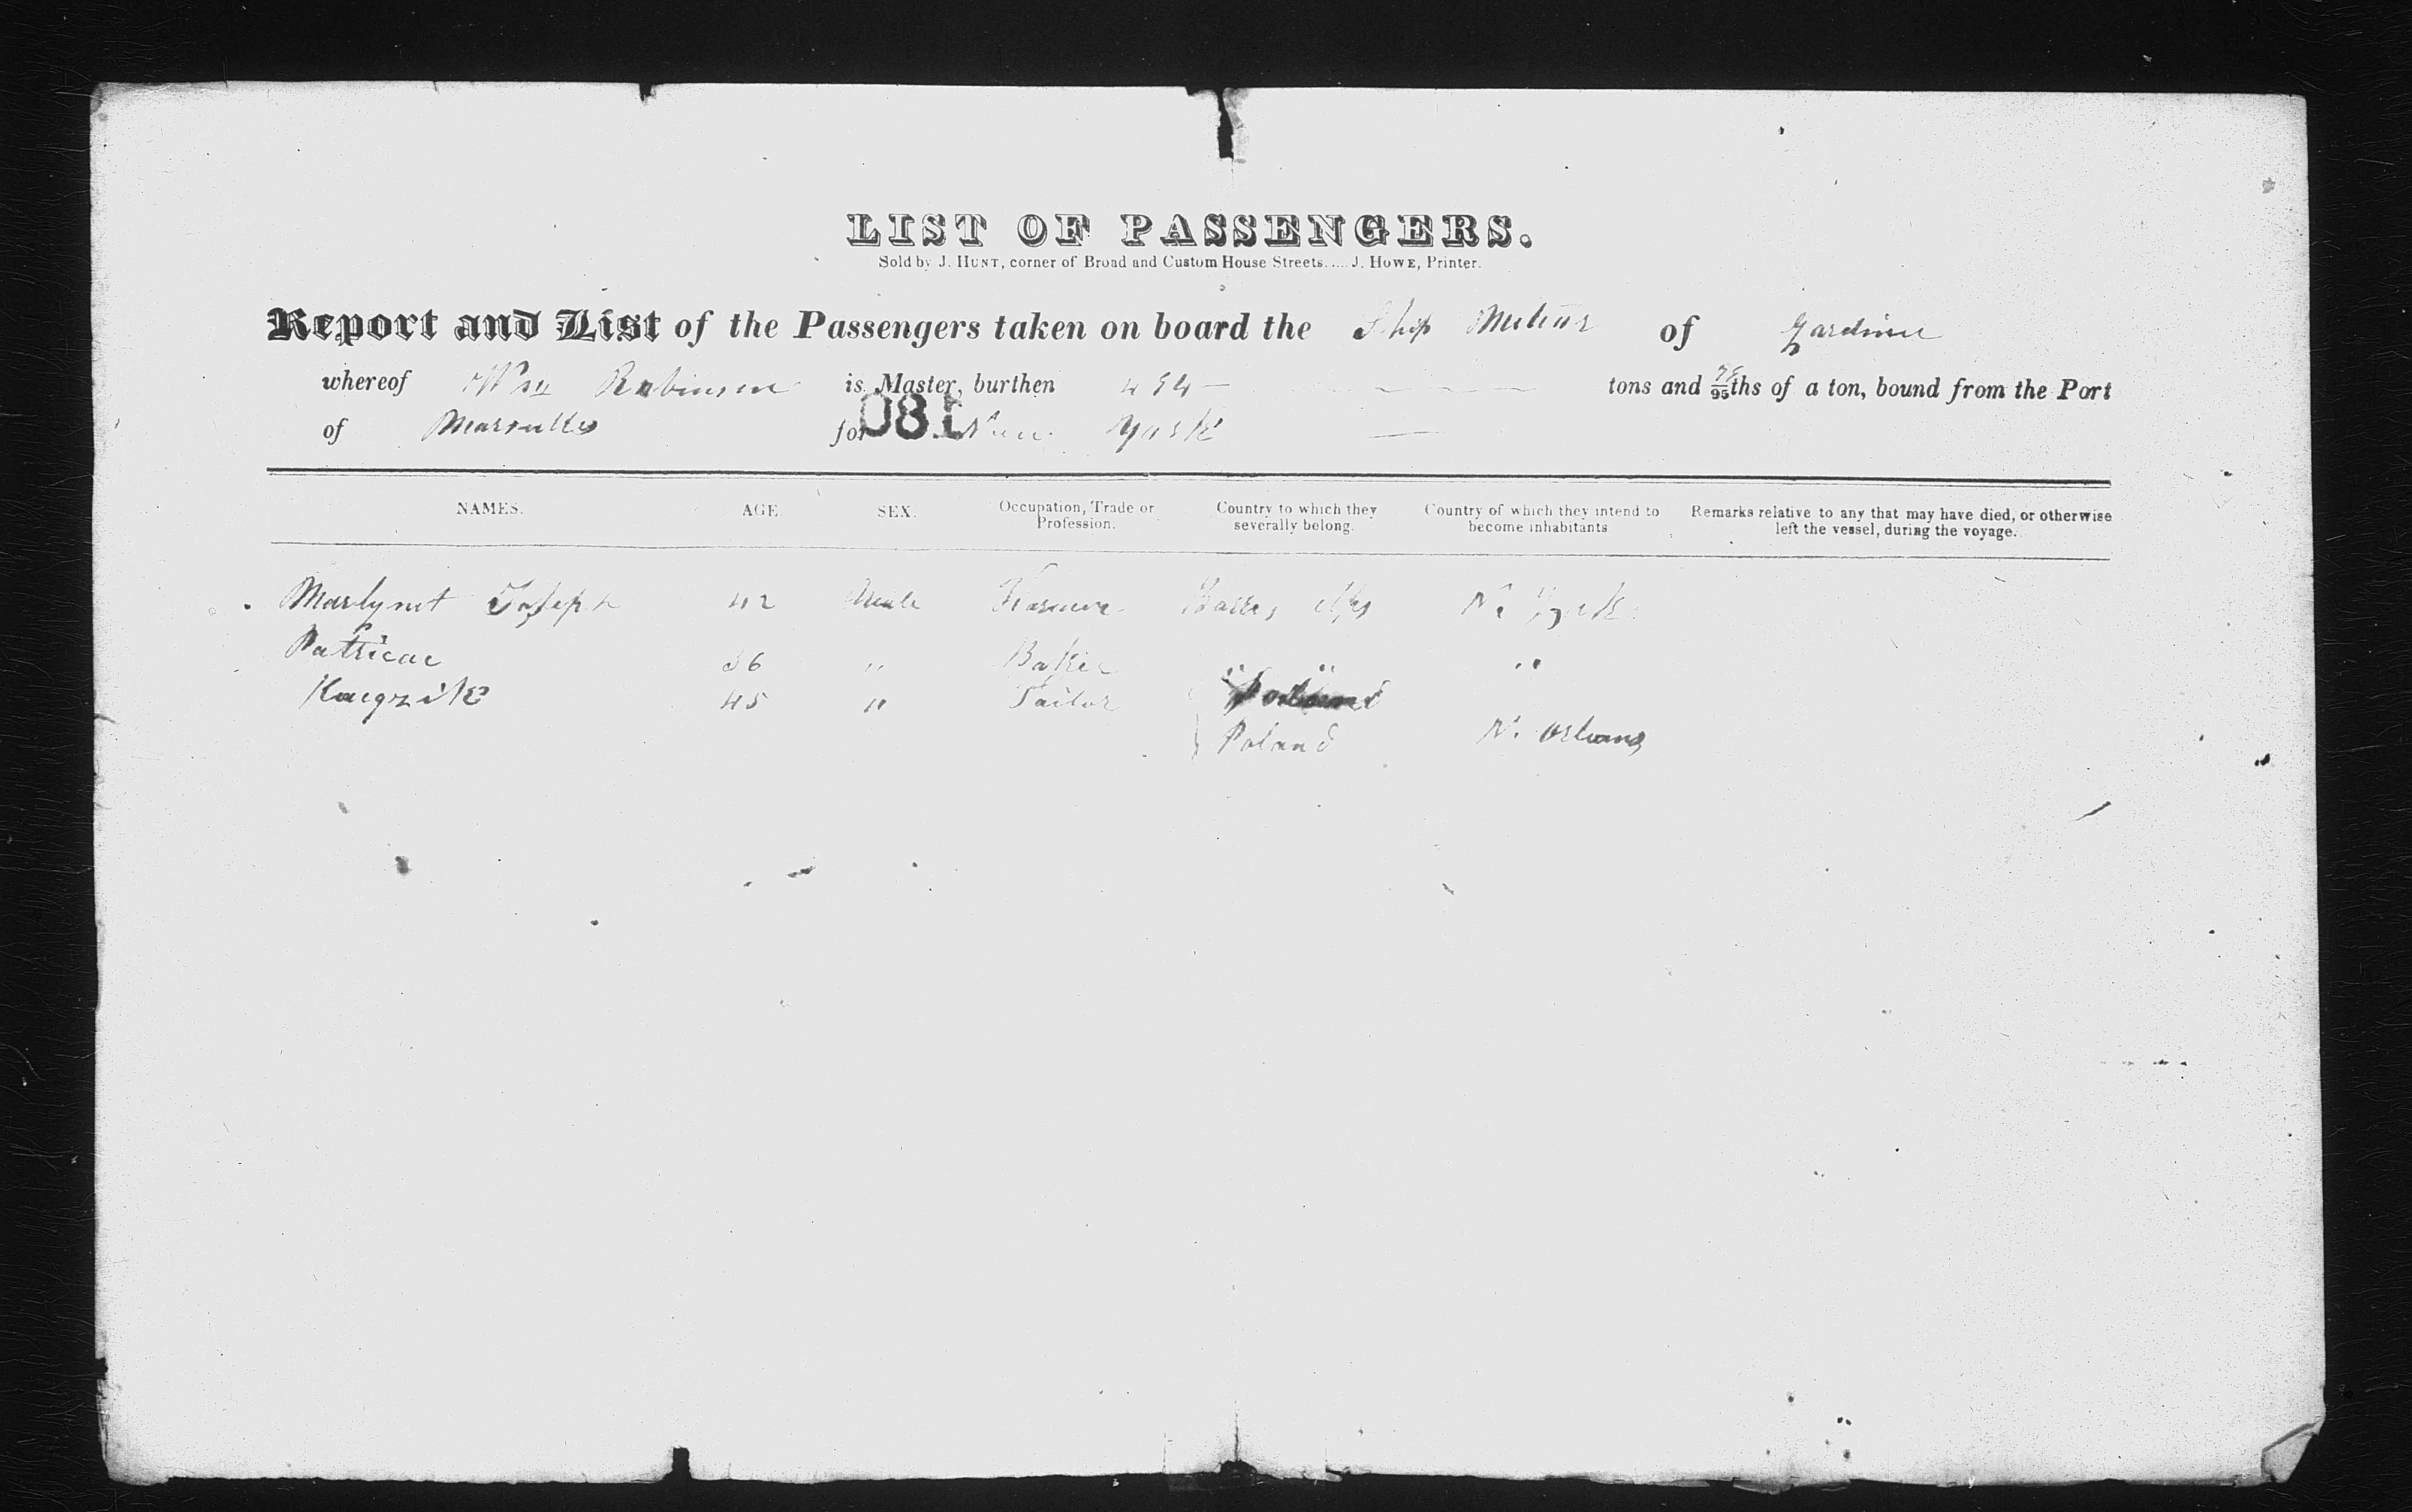 LIST OF PASSENGERS.
Sold by J. HUNT, corner of Broad and Custom House Streets.....J. HOWE, Printer.
Report and List of the Passengers taken on board the Ship of Gardiner
whereof Wm Robinson is Master, burthen 494 — tons and 75/95ths of a ton, bound from the Port
of Marseilles for New York
081
NAMES. AGE. SEX. Occupation, Trade or Profession. Country to which they severally belong. Country of which they intend to become inhabitants. Remarks relative to any that may have died, or otherwise left the vessel, during the voyage.
Joseph 42 Male Basses Alps N. York
36 " Baker " " "
45 " Tailor
Poland N. Orleans